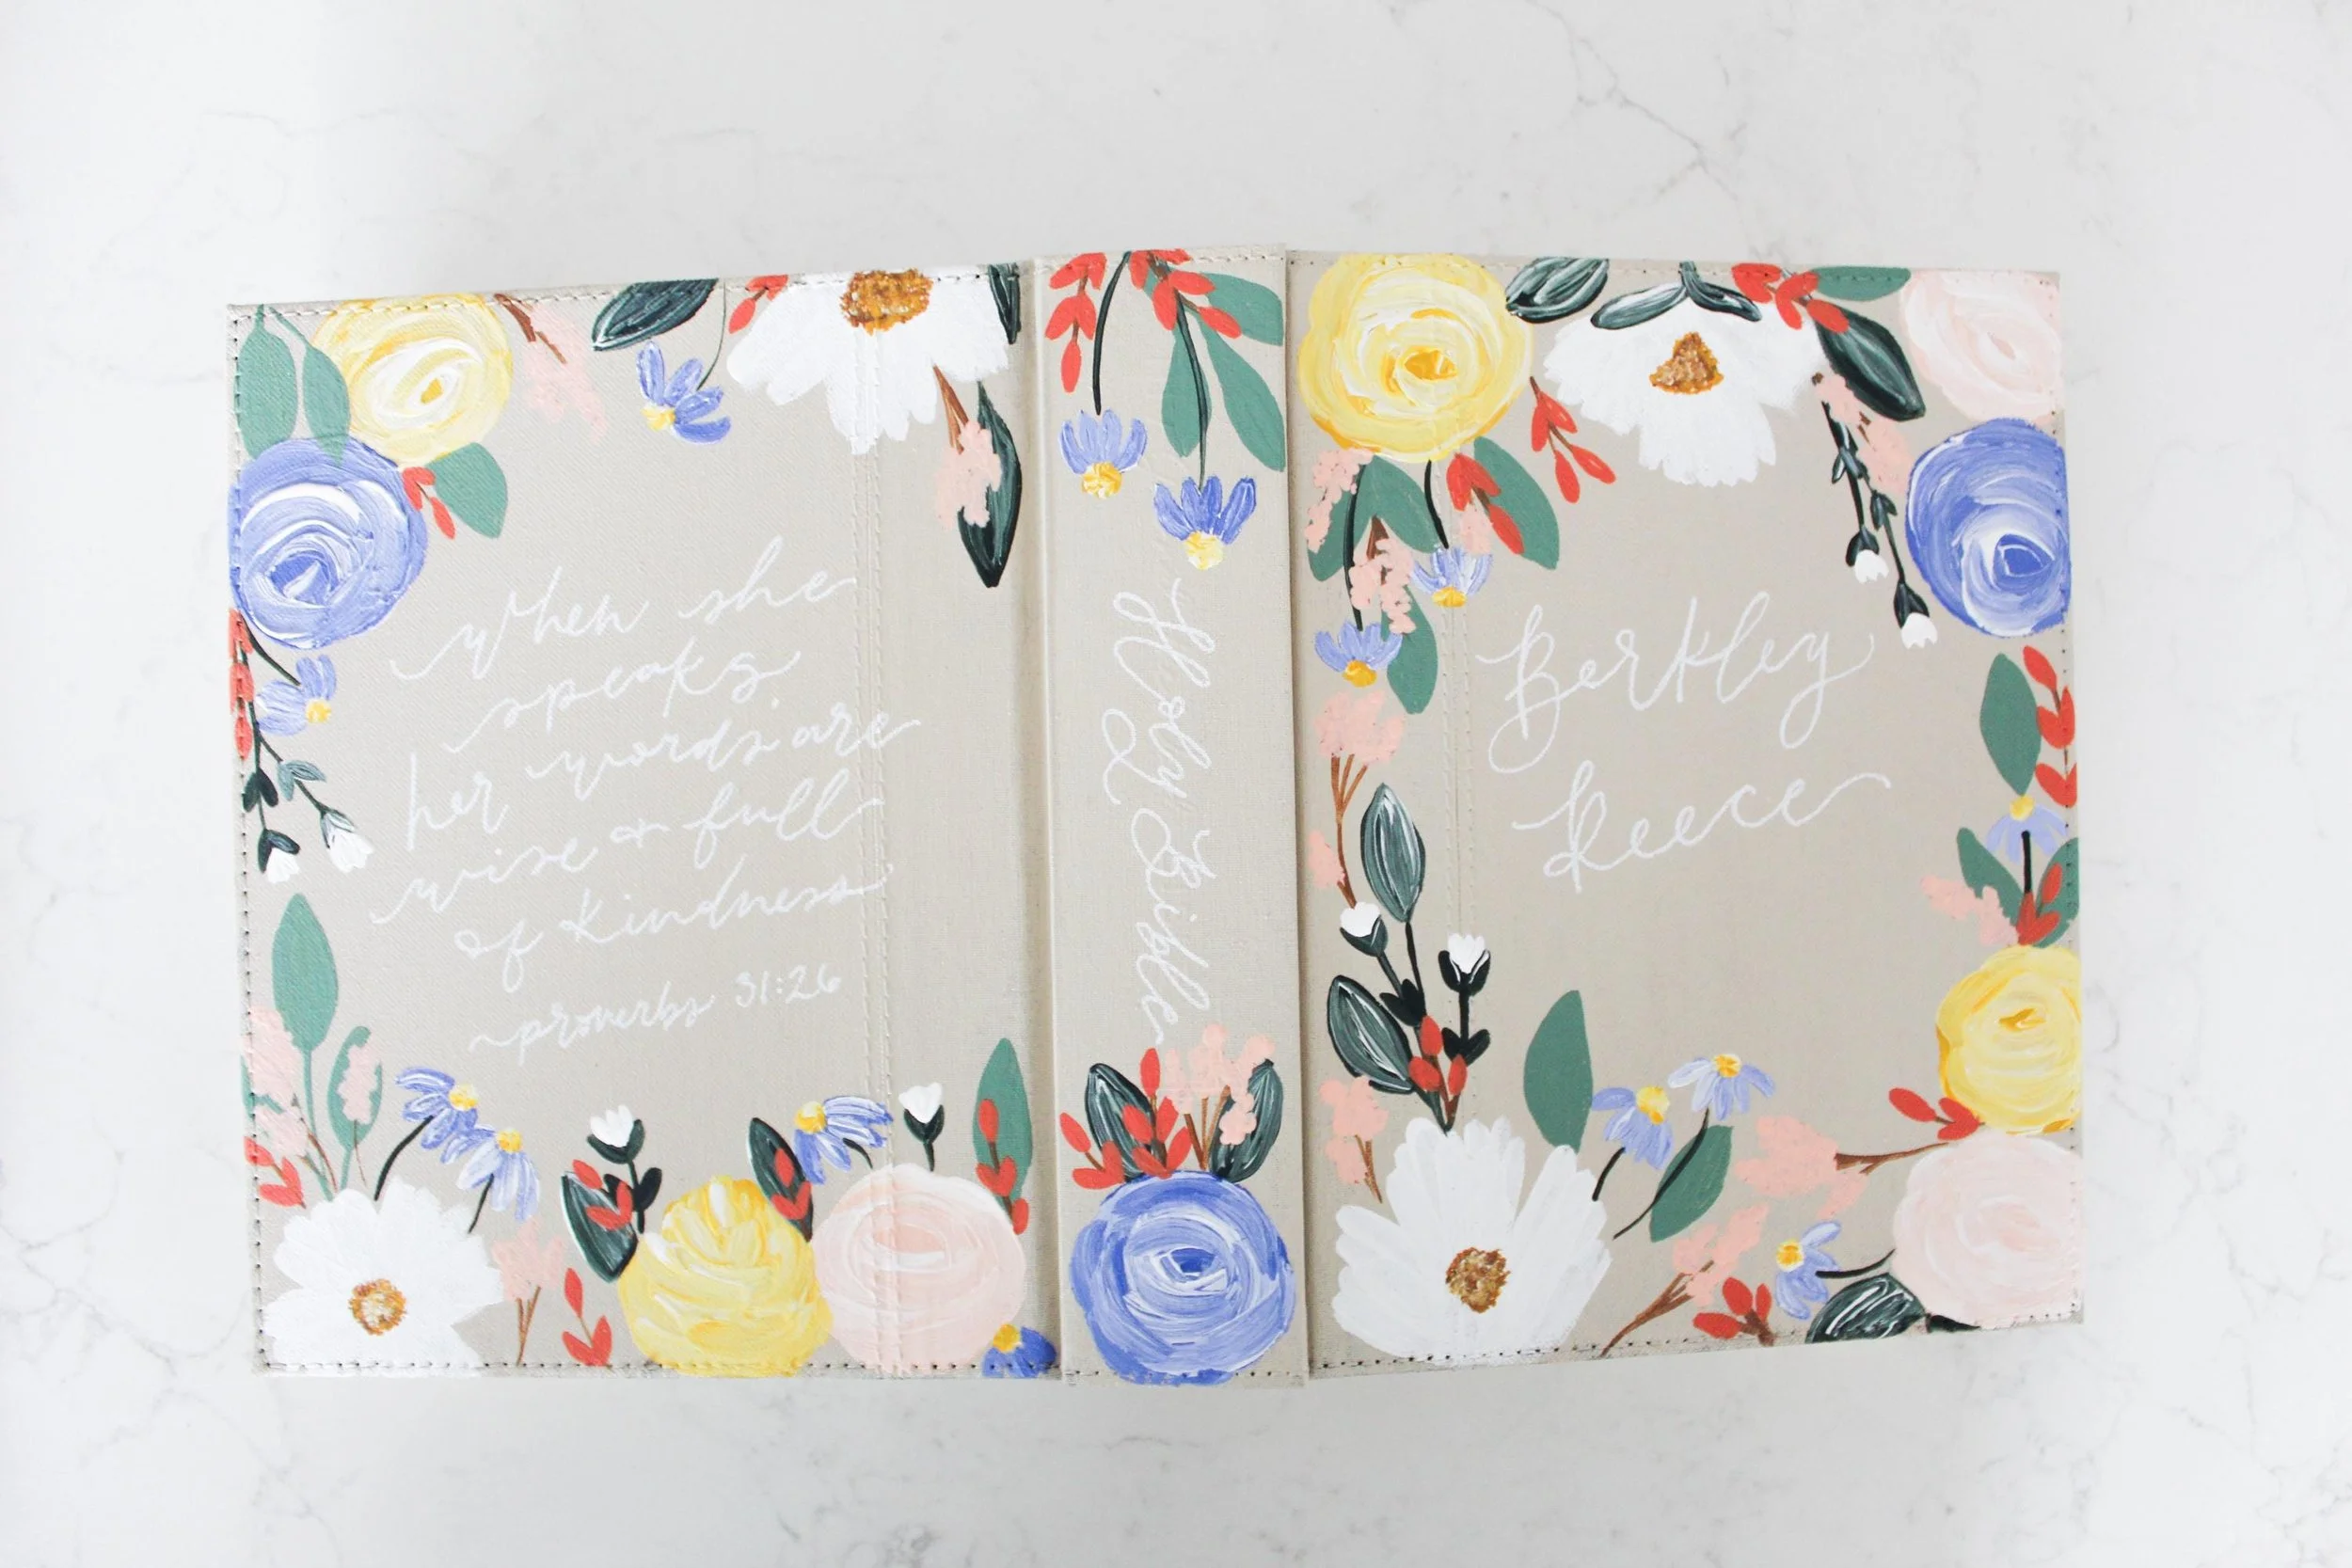 When she
speaks,
her words are
wise + full
of kindness
~proverbs 31:26
Holy Bible
Berkley
Reece